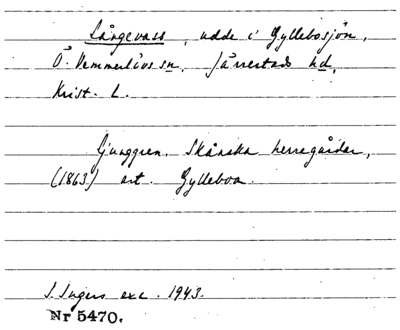 Långevass, udde i Gyllebosjön,
Ö. Vemmerlövs sn, Järrestads hd,
Krist. L.
Ljunggren, Skånska herregårdar,
(1863) art. Gylleboa.
I. Ingers exc. 1943.
Nr 5470.